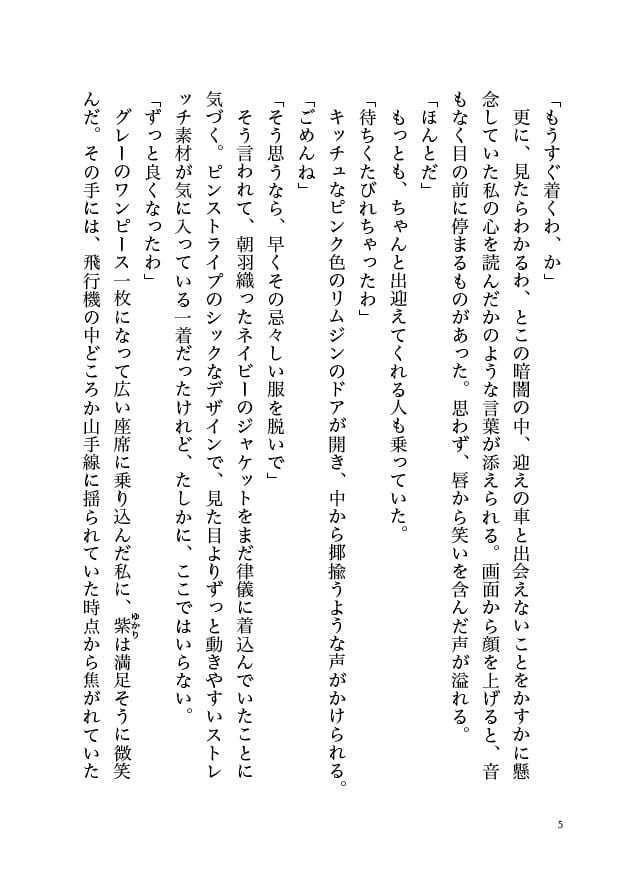 「もうすぐ着くわ、か」
　更に、見たらわかるわ、とこの暗闇の中、迎えの車と出会えないことをかすかに懸
念していた私の心を読んだかのような言葉が添えられる。画面から顔を上げると、音
もなく目の前に停まるものがあった。思わず、唇から笑いを含んだ声が溢れる。
「ほんとだ」
　もっとも、ちゃんと出迎えてくれる人も乗っていた。
「待ちくたびれちゃったわ」
　キッチュなピンク色のリムジンのドアが開き、中から揶揄うような声がかけられる。
「ごめんね」
「そう思うなら、早くその忌々しい服を脱いで」
　そう言われて、朝羽織ったネイビーのジャケットをまだ律儀に着込んでいたことに
気づく。ピンストライプのシックなデザインで、見た目よりずっと動きやすいストレ
ッチ素材が気に入っている一着だったけれど、たしかに、ここではいらない。
「ずっと良くなったわ」
　グレーのワンピース一枚になって広い座席に乗り込んだ私に、紫は満足そうに微笑
ゆかり
んだ。その手には、飛行機の中どころか山手線に揺られていた時点から焦がれていた
5